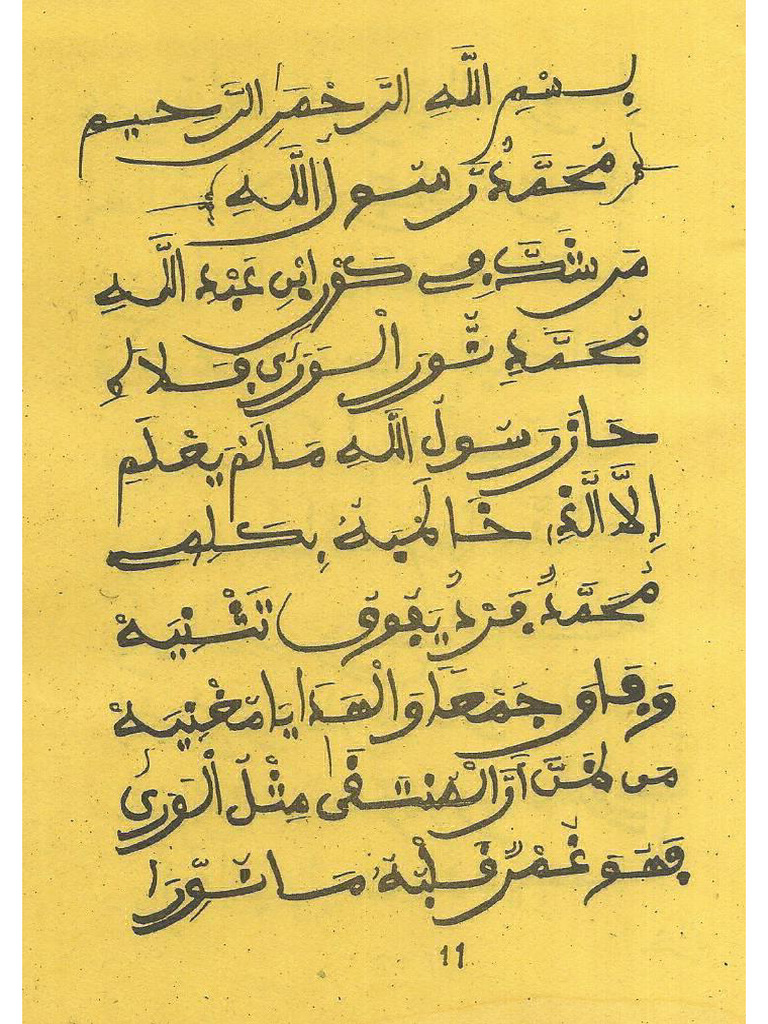 بِسْمِ اللَّهِ الرَّحْمَٰنِ الرَّحِيمِ
﴿مُحَمَّدٌ رَّسُولُ اللَّهِ﴾
مَن شَكَّ فِي كَوْنِ ابْنِ عَبْدِ اللَّهِ
مُحَمَّدٍ نُّورَ الْوَرَىٰ فَلَاهِ
حَازَ رَسُولُ اللَّهِ مَا لَمْ يَعْلَمِ
إِلَّا الَّذِي خَاطَبَهُ بِكَلِمِ
مُحَمَّدٌ فَرْدٌ يَفُوقُ تَثْنِيَهْ
وَفَاقَ جَمْعًا وَالْهَدَايَا مُغْنِيَهْ
مَن ظَنَّ أَنَّ الْمُنتَقَىٰ مِثْلُ الْوَرَىٰ
فَهُوَ غَمْرٌ قَلْبُهُ مَا نُوِّرَا
11